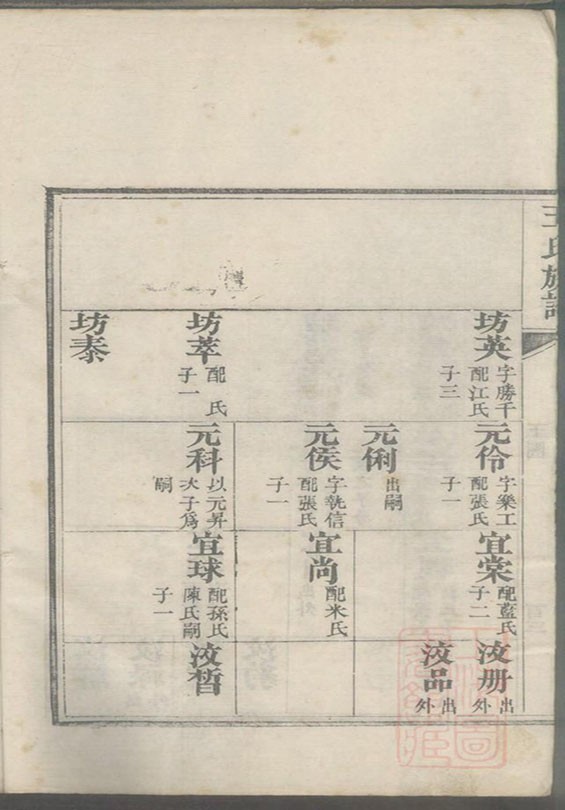 王氏族譜
坊英
字勝千
配江氏
子三
坊萃
配　氏
子一
坊泰
元伶
字樂工
配張氏
子一
元俐
出嗣
元侯
字執信
配張氏
子一
元科
以元昇
次子為
嗣
宜棠
配藍氏
子二
宜尚
配米氏
宜球
配孫氏
陳氏嗣
子一
汷册
出
外
汷品
出
外
汷晳